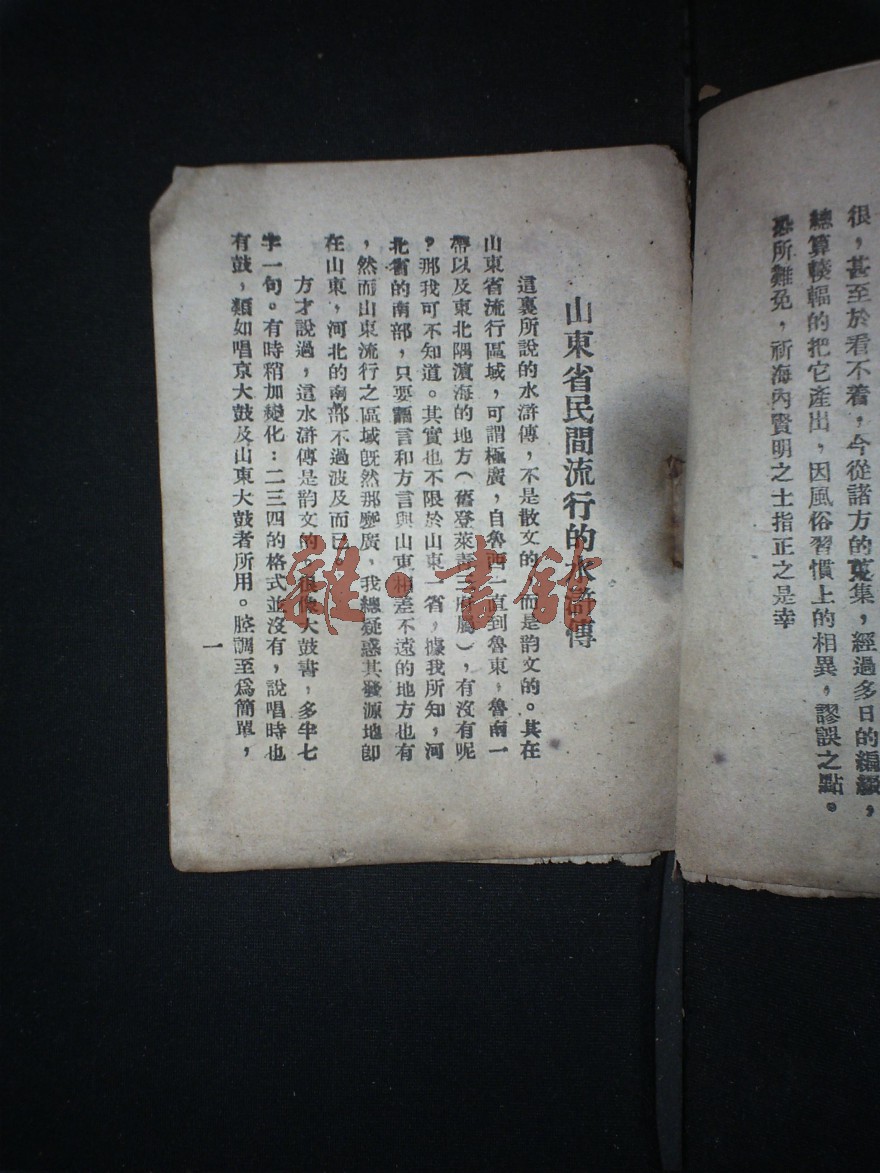 很，甚至於看不着，今從諸方的蒐集，經過多日的編綴，
總算輳輻的把它產出，因風俗習慣上的相異，謬誤之點。
恐所難免，祈海內賢明之士指正之是幸
山東省民間流行的水滸傳
這裏所說的水滸傳，不是散文的，而是韵文的。其在
山東省流行區域，可謂極廣，自魯西一直到魯東，魯南一
帶以及東北隅濱海的地方（舊登萊青三府屬），有沒有呢
？那我可不知道。其實也不限於山東一省，據我所知，河
北省的南部，只要語言和方言與山東相差不遠的地方也有
，然而山東流行之區域既然那麽廣，我總疑惑其發源地卽
在山東，河北的南部不過波及而已。
方才說過，這水滸傳是韵文的，很像大鼓書，多半七
字一句。有時稍加變化：二三四的格式並沒有，說唱時也
有鼓，類如唱京大鼓及山東大鼓者所用。腔調至爲簡單，
一
雜·書館